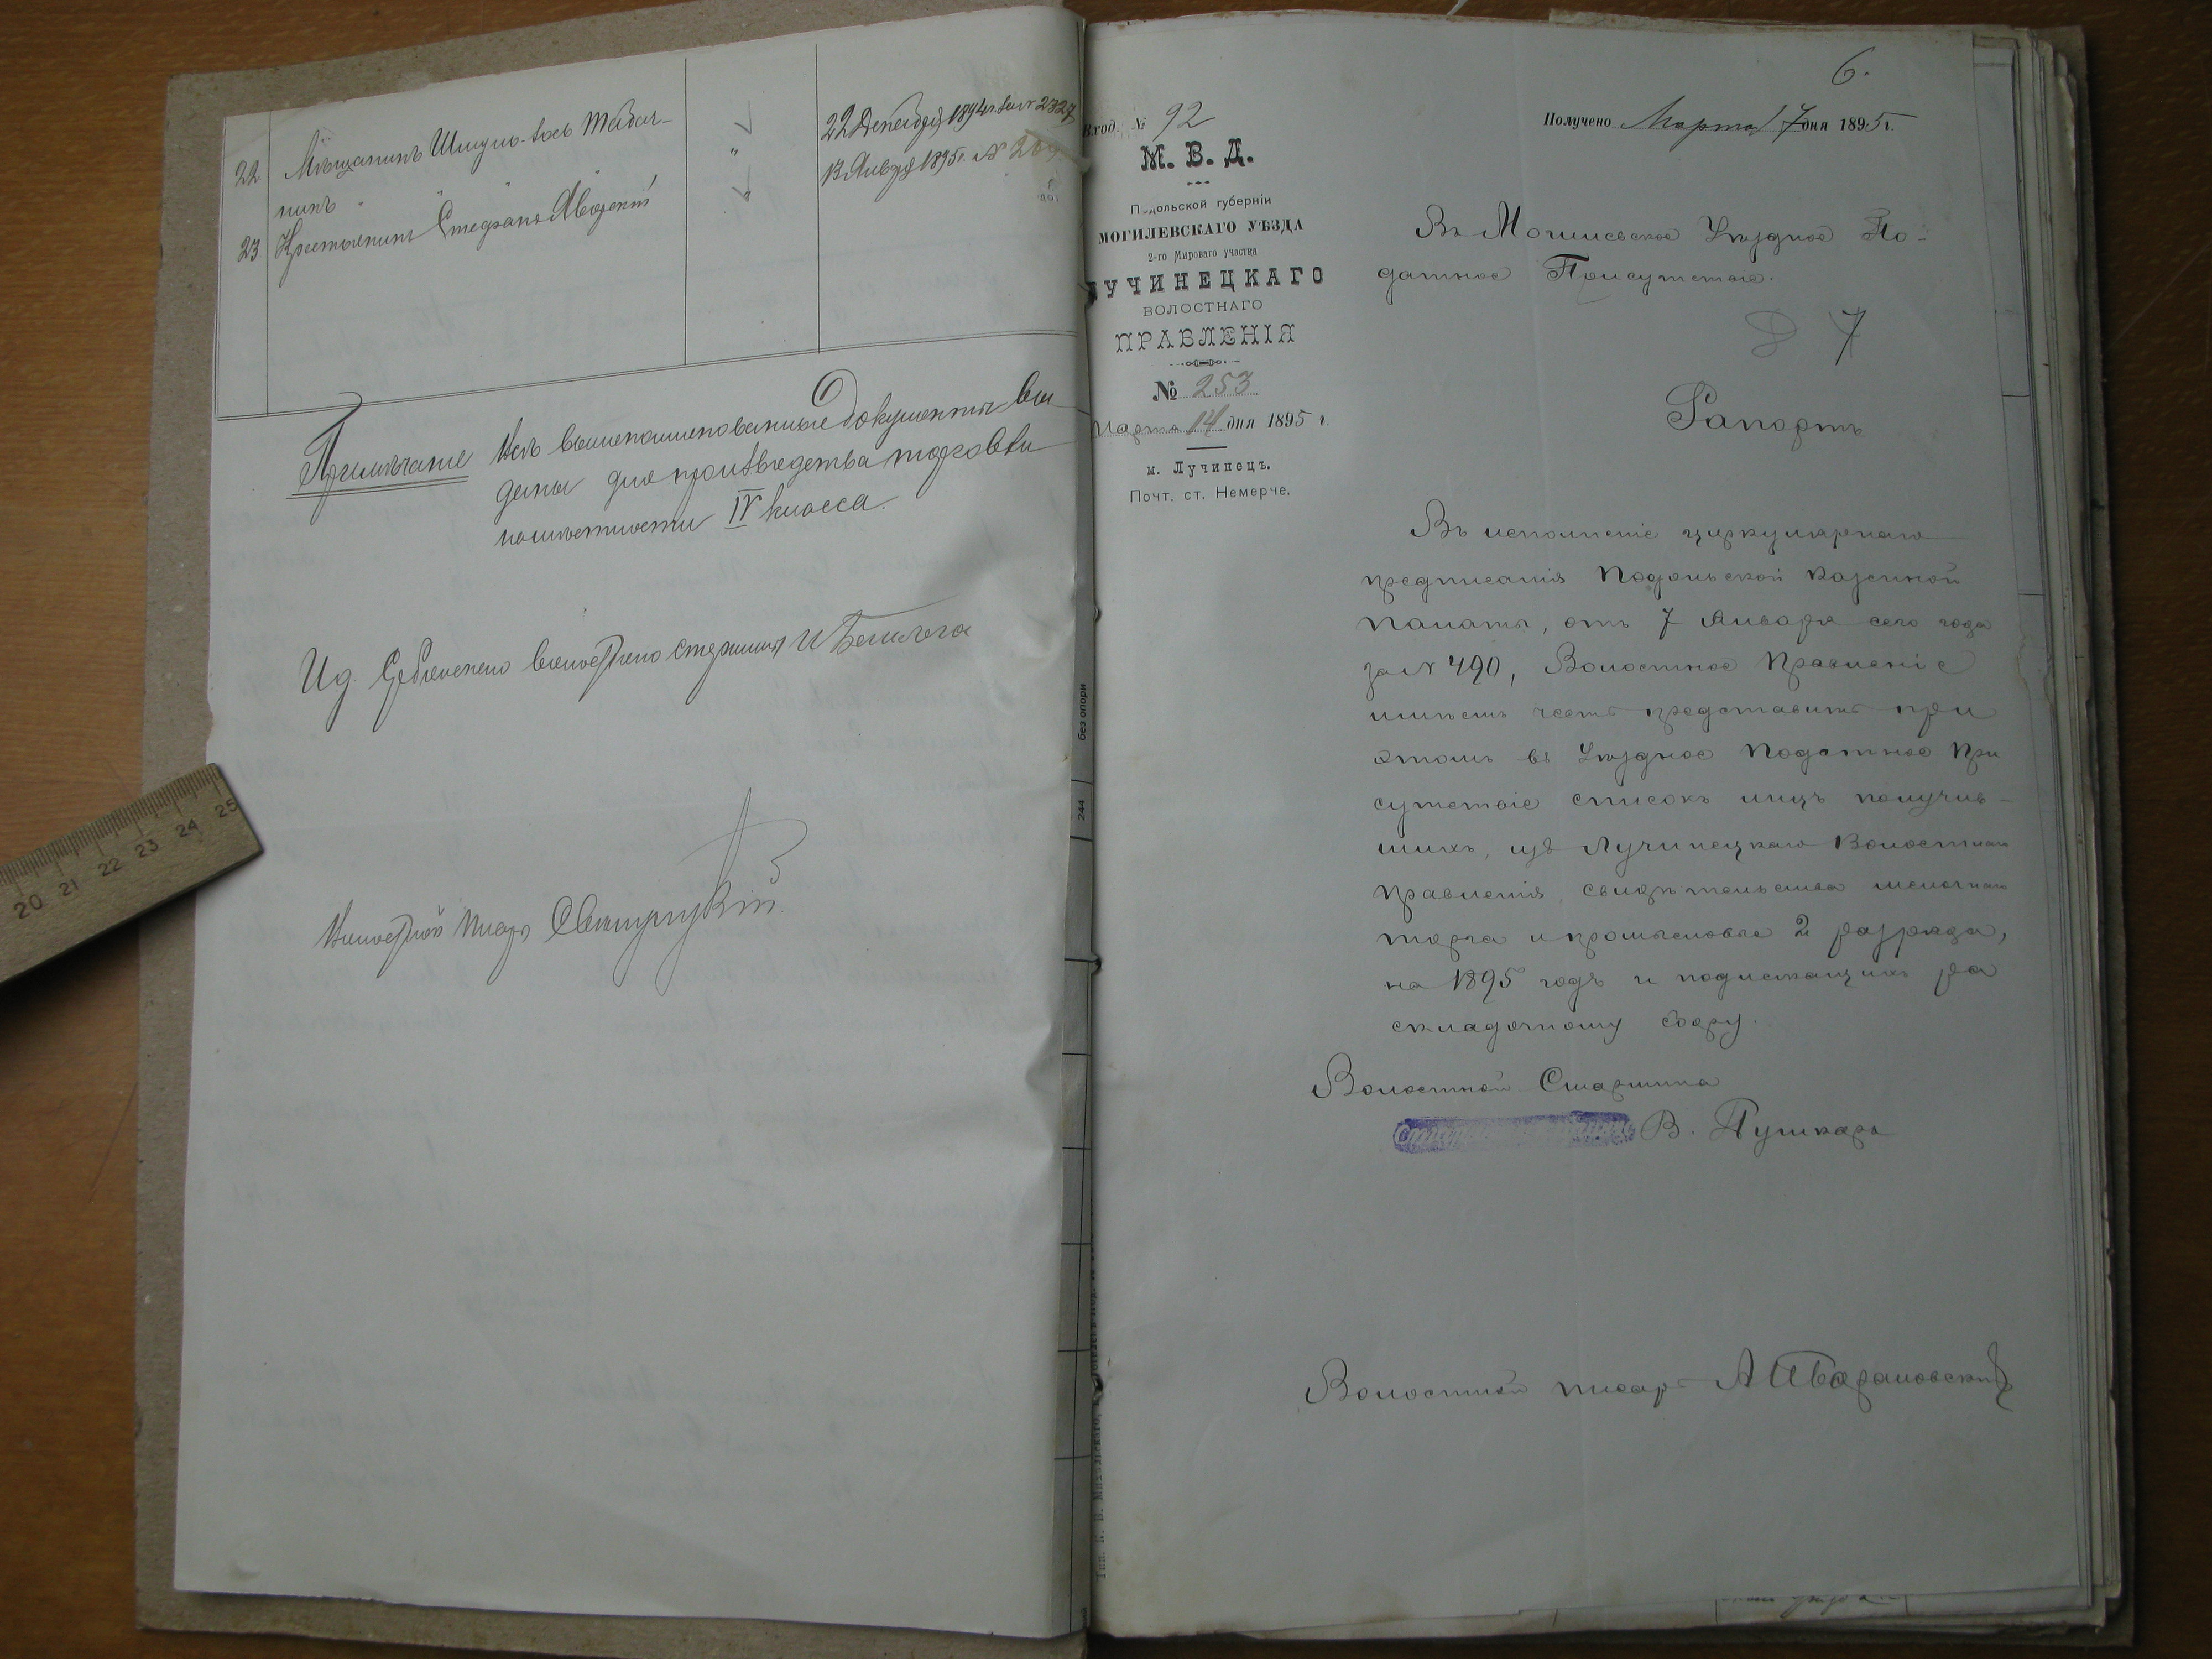 22. Мѣщанинъ Шмуль-
22 Декабря 1894 г. за № 2327
нинъ
23. Крестьянинъ Стефанъ Яворскій
13 Января 1895 г. №
Примѣчаніе Всѣ вышепоименованные документы вы
даны для производства торговли
въ мѣстности IV класса.
Волостной Писарь
20 21 22 23 24 25
без опори
244
6.
Вход. № 92
Получено Марта 17 дня 1895 г.
М. В. Д.
Подольской губерніи
МОГИЛЕВСКАГО УѢЗДА
2-го Мироваго участка
ЛУЧИНЕЦКАГО
ВОЛОСТНАГО
ПРАВЛЕНІЯ
№ 253
Марта 14 дня 1895 г.
м. Лучинецъ.
Почт. ст. Немерче.
Въ Могилевское Уѣздное По-
датное Присутствіе.
7
Рапортъ
Въ исполненіе циркулярнаго
предписанія Подольской Казенной
Палаты, отъ 7 Января сего года
за № 490, Волостное Правленіе
имѣетъ честь представить при
этомъ въ Уѣздное Податное При
сутствіе списокъ лицъ получив-
шихъ, изъ Лучинецкаго Волостнаго
Правленія свидѣтельства мелочнаго
торга и промысловые 2 разряда,
на 1895 годъ и подлежащихъ ра
складочному сбору.
Волостной Старшина
В. Пушкарь
Волостной писарь А Барановскій